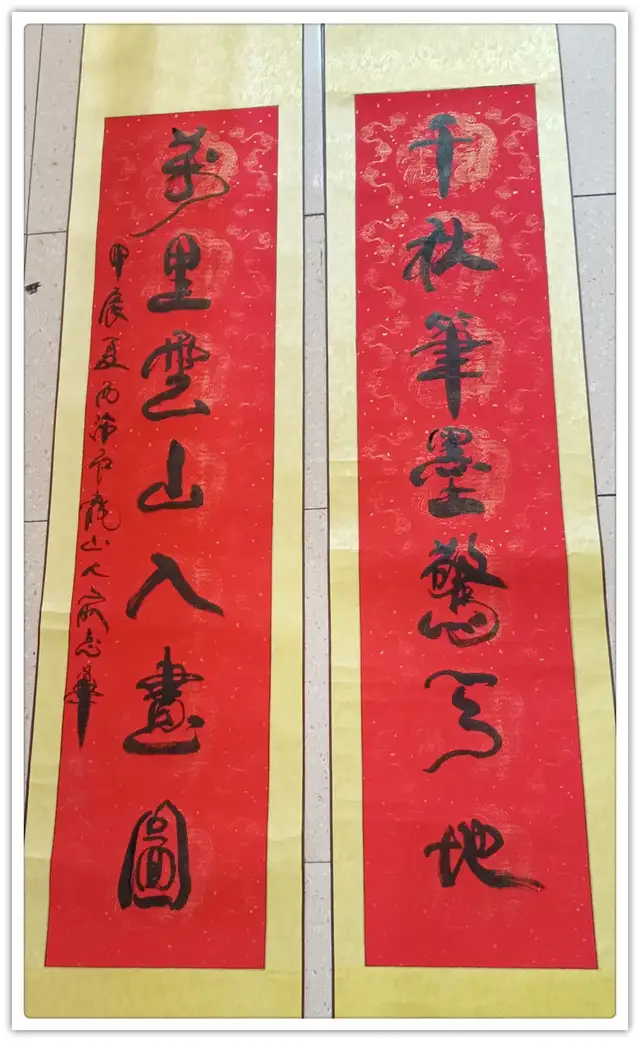 千秋筆墨驚天地
萬里雲山入畫圖
甲辰夏 龍山人 志華